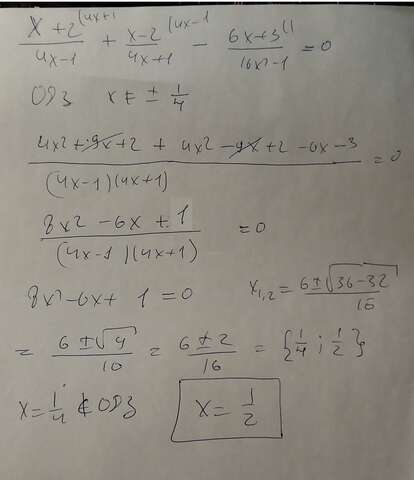 (x+2)^(4x+1)/(4x-1) + (x-2)^(4x-1)/(4x+1) - (6x+3)^(1)/(16x²-1) = 0
ОДЗ x ≠ ± 1/4
(4x² + 9x + 2 + 4x² - 9x + 2 - 6x - 3)/((4x-1)(4x+1)) = 0
(8x² - 6x + 1)/((4x-1)(4x+1)) = 0
8x² - 6x + 1 = 0 x1,2 = (6 ± √(36-32))/16
= (6 ± √4)/10 = (6 ± 2)/16 = {1/4 ; 1/2}
x = 1/4 ∉ ОДЗ x = 1/2